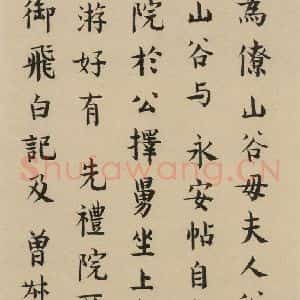 為僚山谷母夫人
山谷与 永安帖自
院於公擇舅坐上
游好有 先禮院
御飛白記及 曾叔
Shufawang.CN